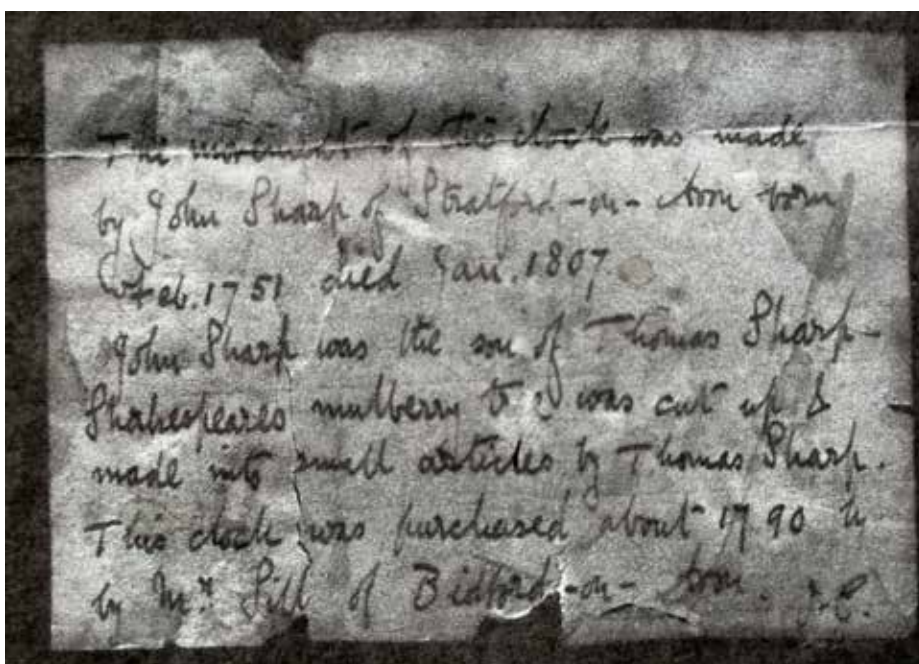 The movement of this clock was made
by John Sharp of Stratford-on-Avon born
Feb. 1751 died Jan. 1807
John Sharp was the son of Thomas Sharp-
Shakespeares mulberry tree was cut up &
made into small articles by Thomas Sharp.
This clock was purchased about 1790
by of Bidford-on-Avon.